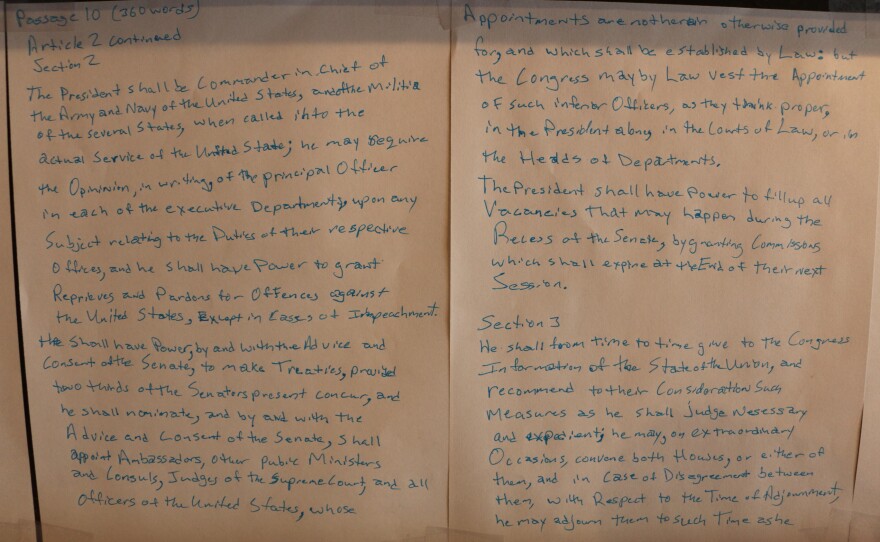 Passage 10 (360 words)
Article 2 continued
Section 2
The President shall be Commander in Chief of
the Army and Navy of the United States, and of the Militia
of the several States, when called into the
actual Service of the United State; he may require
the Opinnion, in writing, of the principal Officer
in each of the executive Departments, upon any
Subject relating to the Duties of their respective
Offices, and he shall have Power to grant
Reprieves and Pardons for Offences against
the United States, Except in Cases of Impeachment.
He shall have Power, by and with the Advice and
Consent of the Senate, to make Treaties, provided
two thirds of the Senators present concur, and
he shall nominate, and by and with the
Advice and Consent of the Senate, shall
appoint Ambassadors, other public Ministers
and Consuls, Judges of the Supreme Court, and all
Officers of the United States, whose
Appointments are not herein otherwise provided
for, and which shall be established by Law: but
the Congress may by Law vest the Appointment
of such inferior Officers, as they think proper,
in the President alone, in the Courts of Law, or in
the Heads of Departments.
The President shall have Power to fill up all
Vacancies that may happen during the
Recess of the Senate, by granting Commissions
which shall expire at the End of their next
Session.
Section 3
He shall from time to time give to the Congress
Information of the State of the Union, and
recommend to their Consideration Such
Measures as he shall Judge Nesessary
and expedient; he may, on extraordinary
Occasions, convene both Houses, or either of
them, and in Case of Disagreement between
them, with Respect to the Time of Adjournment,
he may adjourn them to such Time as he